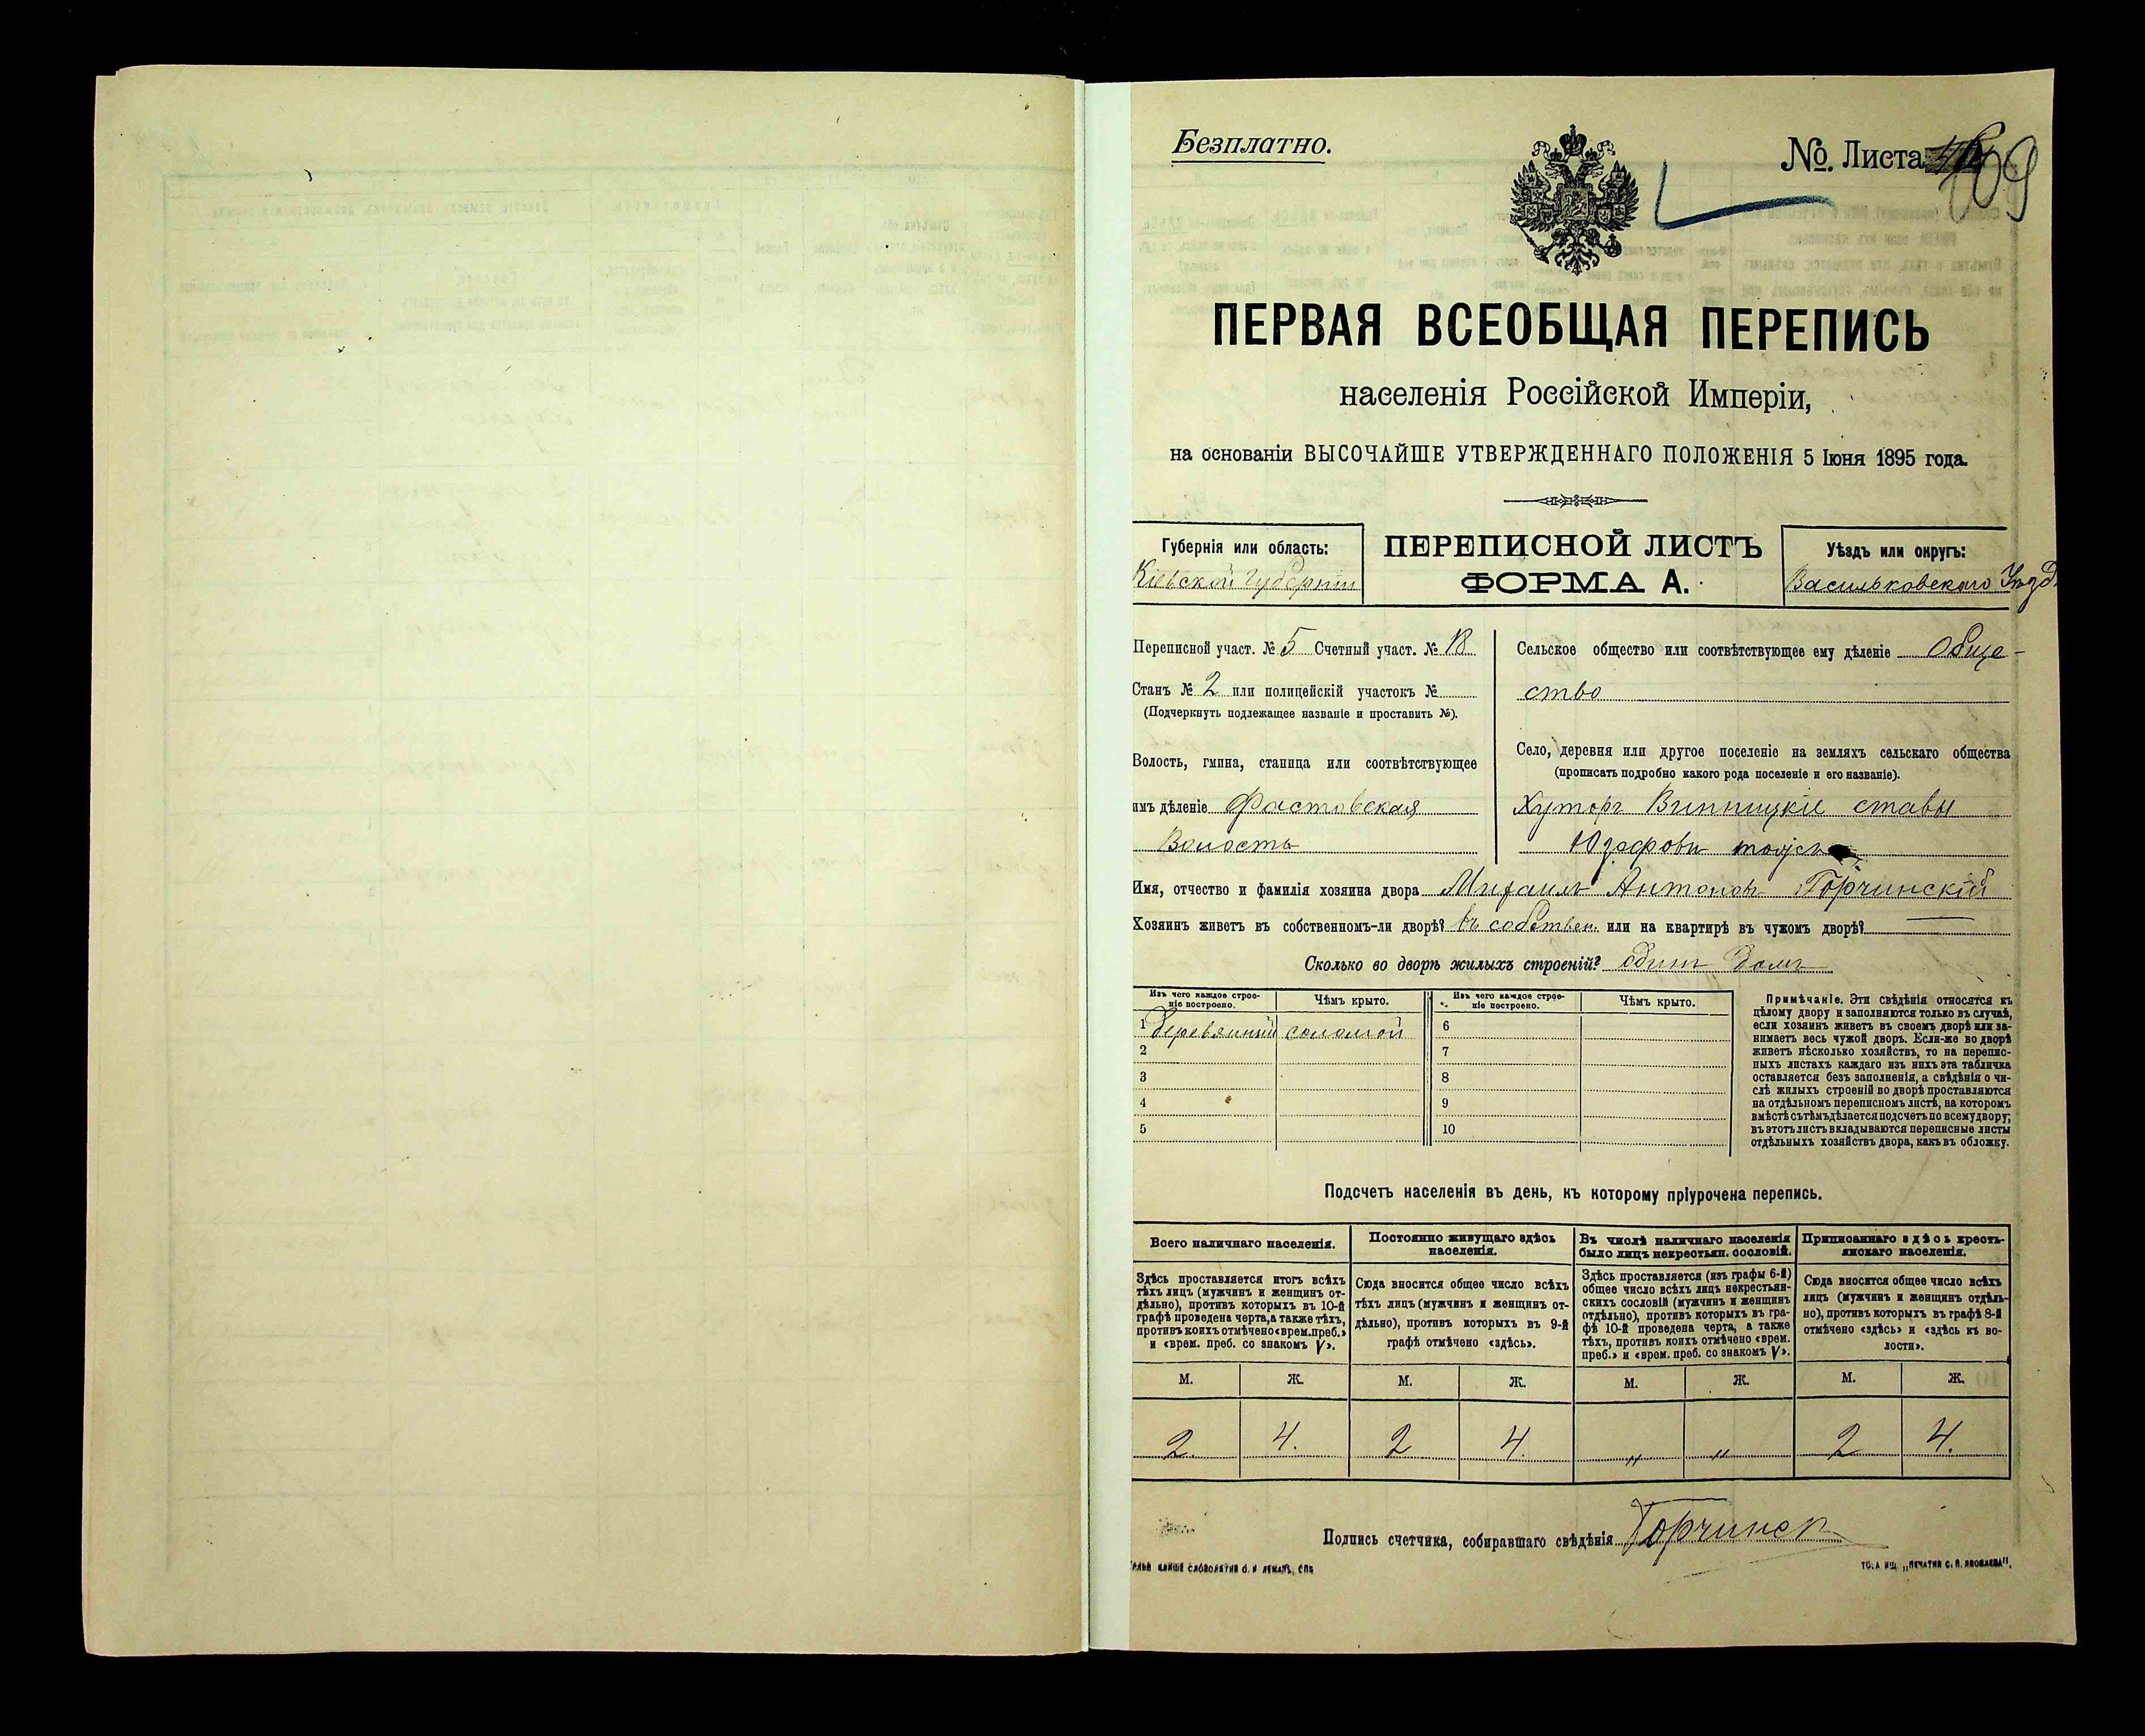 Безплатно.
№ Листа 109
ПЕРВАЯ ВСЕОБЩАЯ ПЕРЕПИСЬ
населенія Россійской Имперіи,
на основаніи ВЫСОЧАЙШЕ УТВЕРЖДЕННАГО ПОЛОЖЕНІЯ 5 Іюня 1895 года.
Губернія или область:
Кіевской Губерніи
ПЕРЕПИСНОЙ ЛИСТЪ
ФОРМА А.
Уѣздъ или округъ:
Васильковскаго Уѣзд
Переписной участ. № 5 Счетный участ. № 18
Станъ № 2 или полицейскій участокъ №
(Подчеркнуть подлежащее названіе и проставить №).
Волость, гмина, станица или соотвѣтствующее
имъ дѣленіе Фастовская
Волость
Сельское общество или соотвѣтствующее ему дѣленіе Обще-
ство
Село, деревня или другое поселеніе на земляхъ сельскаго общества
(прописать подробно какого рода поселеніе и его названіе).
Хуторъ Винницкіе ставы
Имя, отчество и фамилія хозяина двора Михаилъ Антоновъ Горчинскій
Хозяинъ живетъ въ собственномъ-ли дворѣ? въ собствен. или на квартирѣ въ чужомъ дворѣ? —
Сколько во дворѣ жилыхъ строеній? одинъ домъ
Изъ чего каждое строе-
ніе построено.
Чѣмъ крыто.
1 деревянный соломой
2
3
4
5
Изъ чего каждое строе-
ніе построено.
Чѣмъ крыто.
6
7
8
9
10
Примѣчаніе. Эти свѣдѣнія относятся къ
цѣлому двору и заполняются только въ случаѣ,
если хозяинъ живетъ въ своемъ дворѣ или за-
нимаетъ весь чужой дворъ. Если-же во дворѣ
живетъ нѣсколько хозяйствъ, то на перепис-
ныхъ листахъ каждаго изъ нихъ эта табличка
оставляется безъ заполненія, а свѣдѣнія о чи-
слѣ жилыхъ строеній во дворѣ проставляются
на отдѣльномъ переписномъ листѣ, на которомъ
вмѣстѣ съ тѣмъ дѣлается подсчетъ по всему двору;
въ этотъ листъ вкладываются переписные листы
отдѣльныхъ хозяйствъ двора, какъ въ обложку.
Подсчетъ населенія въ день, къ которому пріурочена перепись.
Всего наличнаго населенія.
Здѣсь проставляется итогъ всѣхъ
тѣхъ лицъ (мужчинъ и женщинъ от-
дѣльно), противъ которыхъ въ 10-й
графѣ проведена черта, а также тѣхъ,
противъ коихъ отмѣчено «врем. преб.»
и «врем. преб. со знакомъ V».
Постоянно живущаго здѣсь
населенія.
Сюда вносится общее число всѣхъ
тѣхъ лицъ (мужчинъ и женщинъ от-
дѣльно), противъ которыхъ въ 9-й
графѣ отмѣчено «здѣсь».
Въ числѣ наличнаго населенія
было лицъ некрестьян. сословій.
Здѣсь проставляется (изъ графы 6-й)
общее число всѣхъ лицъ некрестьян-
скихъ сословій (мужчинъ и женщинъ
отдѣльно), противъ которыхъ въ гра-
фѣ 10-й проведена черта, а также
тѣхъ, противъ коихъ отмѣчено «врем.
преб.» и «врем. преб. со знакомъ V».
Приписаннаго здѣсь кресть-
янскаго населенія.
Сюда вносится общее число всѣхъ
лицъ (мужчинъ и женщинъ отдѣль-
но), противъ которыхъ въ графѣ 8-й
отмѣчено «здѣсь» и «здѣсь къ во-
лости».
М. Ж. М. Ж. М. Ж. М. Ж.
2 4. 2 4. „ „ 2 4.
Подпись счетчика, собиравшаго свѣдѣнія Горчинск